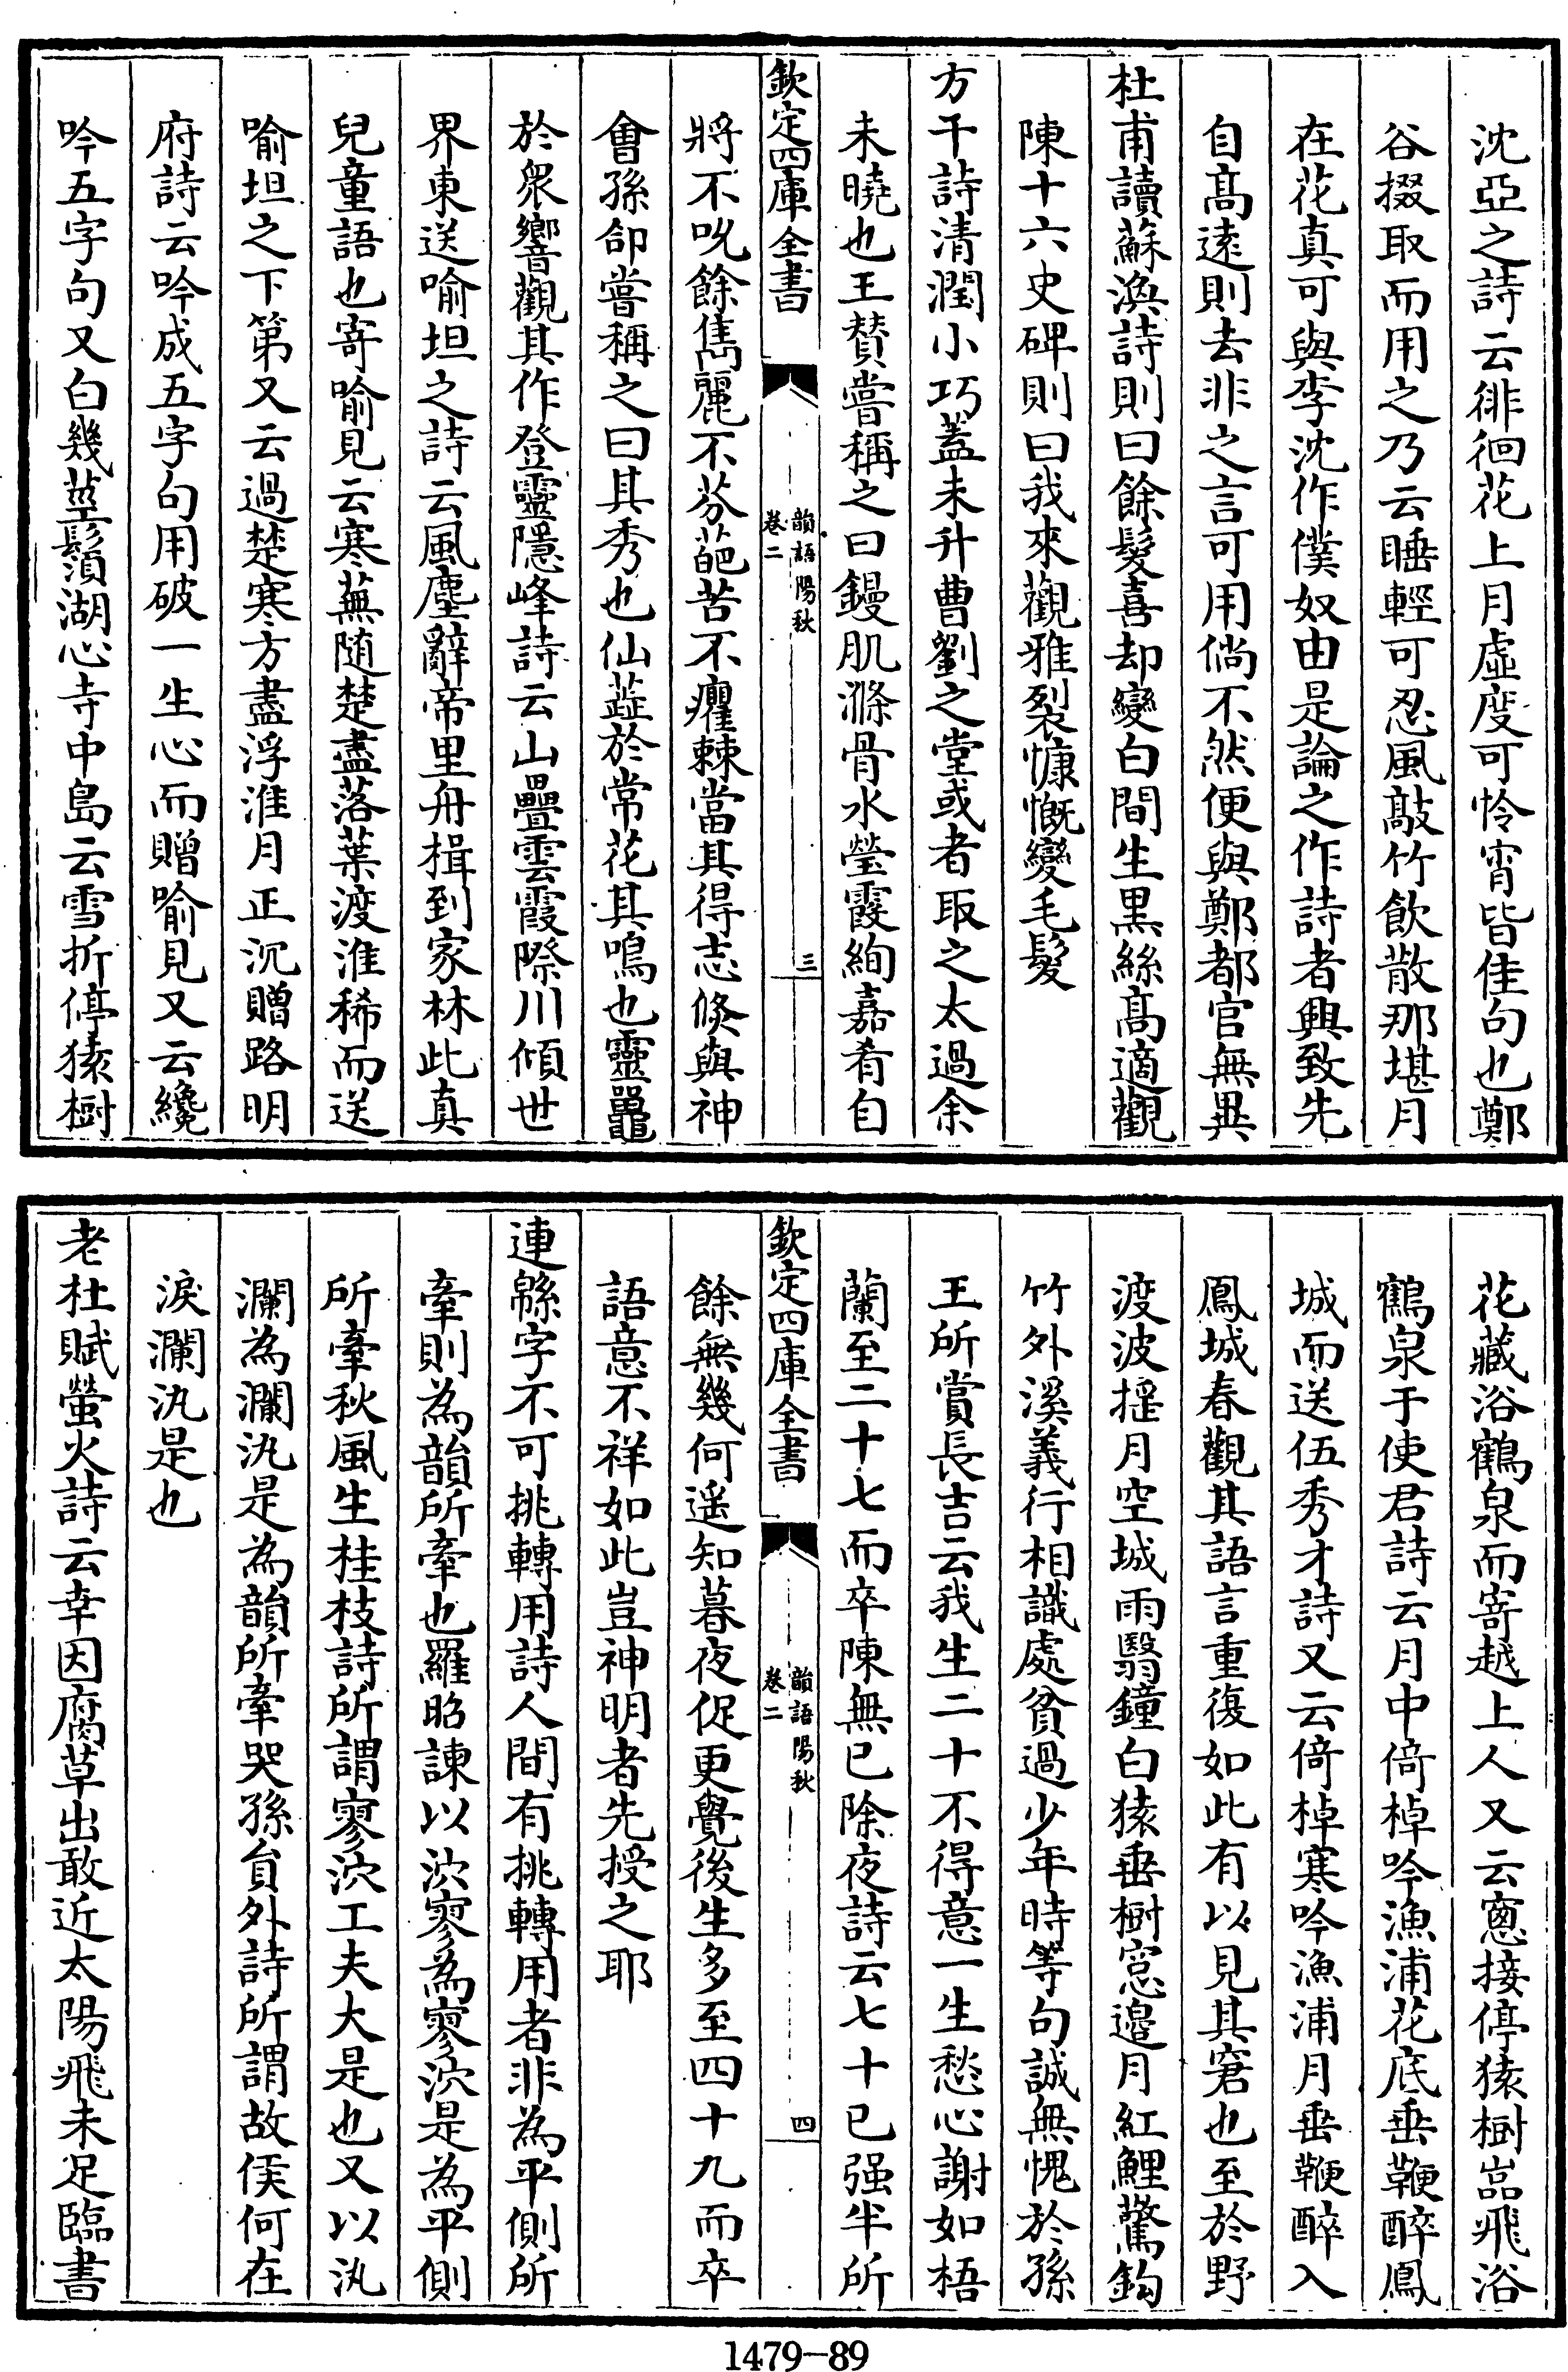 沈亞之詩云徘徊花上月虛度可怜宵皆佳句也鄭
谷掇取而用之乃云睡輕可忍風敲竹飲散那堪月
在花真可與李沈作僕奴由是論之作詩者興致先
自髙遠則去非之言可用倘不然便與鄭都官無異
杜甫讀蘇渙詩則曰餘髮喜却變白間生黒絲髙適觀
陳十六史碑則曰我來觀雅裂慷慨變毛髮
方干詩清潤小巧蓋未升曹劉之堂或者取之太過余
未曉也王賛嘗稱之曰鏝肌滌骨水瑩霞絢嘉肴自
欽定四庫全書
韻語陽秋
卷二
三
將不吮餘雋麗不芬葩苦不癯棘當其得志倐與神
會孫郃嘗稱之曰其秀也仙蘂於常花其鳴也靈鼉
於衆響觀其作登靈隱峰詩云山疊雲霞際川傾世
界東送喻坦之詩云風塵辭帝里舟楫到家林此真
兒童語也寄喻見云寒蕪随楚盡落葉渡淮稀而送
喻坦之下第又云過楚寒方盡浮淮月正沉贈路明
府詩云吟成五字句用破一生心而贈喻見又云纔
吟五字句又白幾莖鬚湖心寺中島云雪折停猿樹
花藏浴鶴泉而寄越上人又云窻接停猿樹嵓飛浴
鶴泉于使君詩云月中倚棹吟漁浦花底垂鞭醉鳳
城而送伍秀才詩又云倚棹寒吟漁浦月垂鞭醉入
鳳城春觀其語言重復如此有以見其窘也至於野
渡波揺月空城雨翳鐘白猿垂樹窓邉月紅鯉驚鈎
竹外溪義行相識處貧過少年時等句誠無愧於孫
王所賞長吉云我生二十不得意一生愁心謝如梧
蘭至二十七而卒陳無已除夜詩云七十已强半所
欽定四庫全書
韻語陽秋
卷二
四
餘無幾何遥知暮夜促更覺後生多至四十九而卒
語意不祥如此豈神明者先授之耶
連緜字不可挑轉用詩人間有挑轉用者非為平側所
牽則為韻所牽也羅昭諫以泬寥為寥泬是為平側
所牽秋風生桂枝詩所謂寥泬工夫大是也又以汍
瀾為瀾汍是為韻所牽哭孫負外詩所謂故侯何在
淚瀾汍是也
老杜賦螢火詩云幸因腐草出敢近太陽飛未足臨書
1479-89